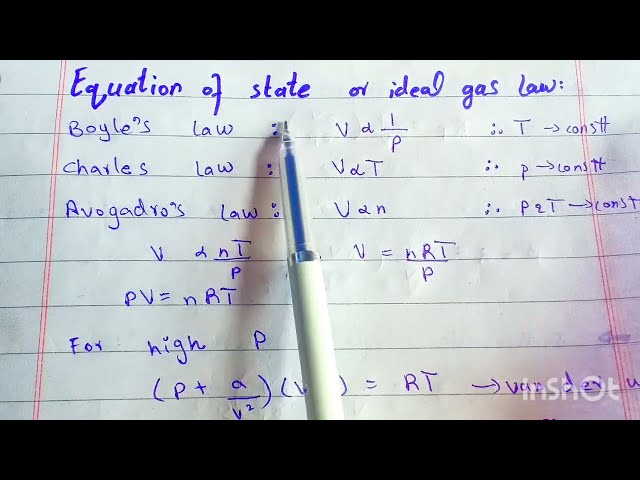 Equation of state or ideal gas law:
Boyle's law : V ∝ 1/P ∴ T → constt
Charles law : V∝T ∴ p → constt
Avogadro's law : V∝n ∴ P&T → const
V ∝ nT/P V = nRT/P
PV = nRT
For high P
(P + a/V²)(V ) = RT → van der w
inshot